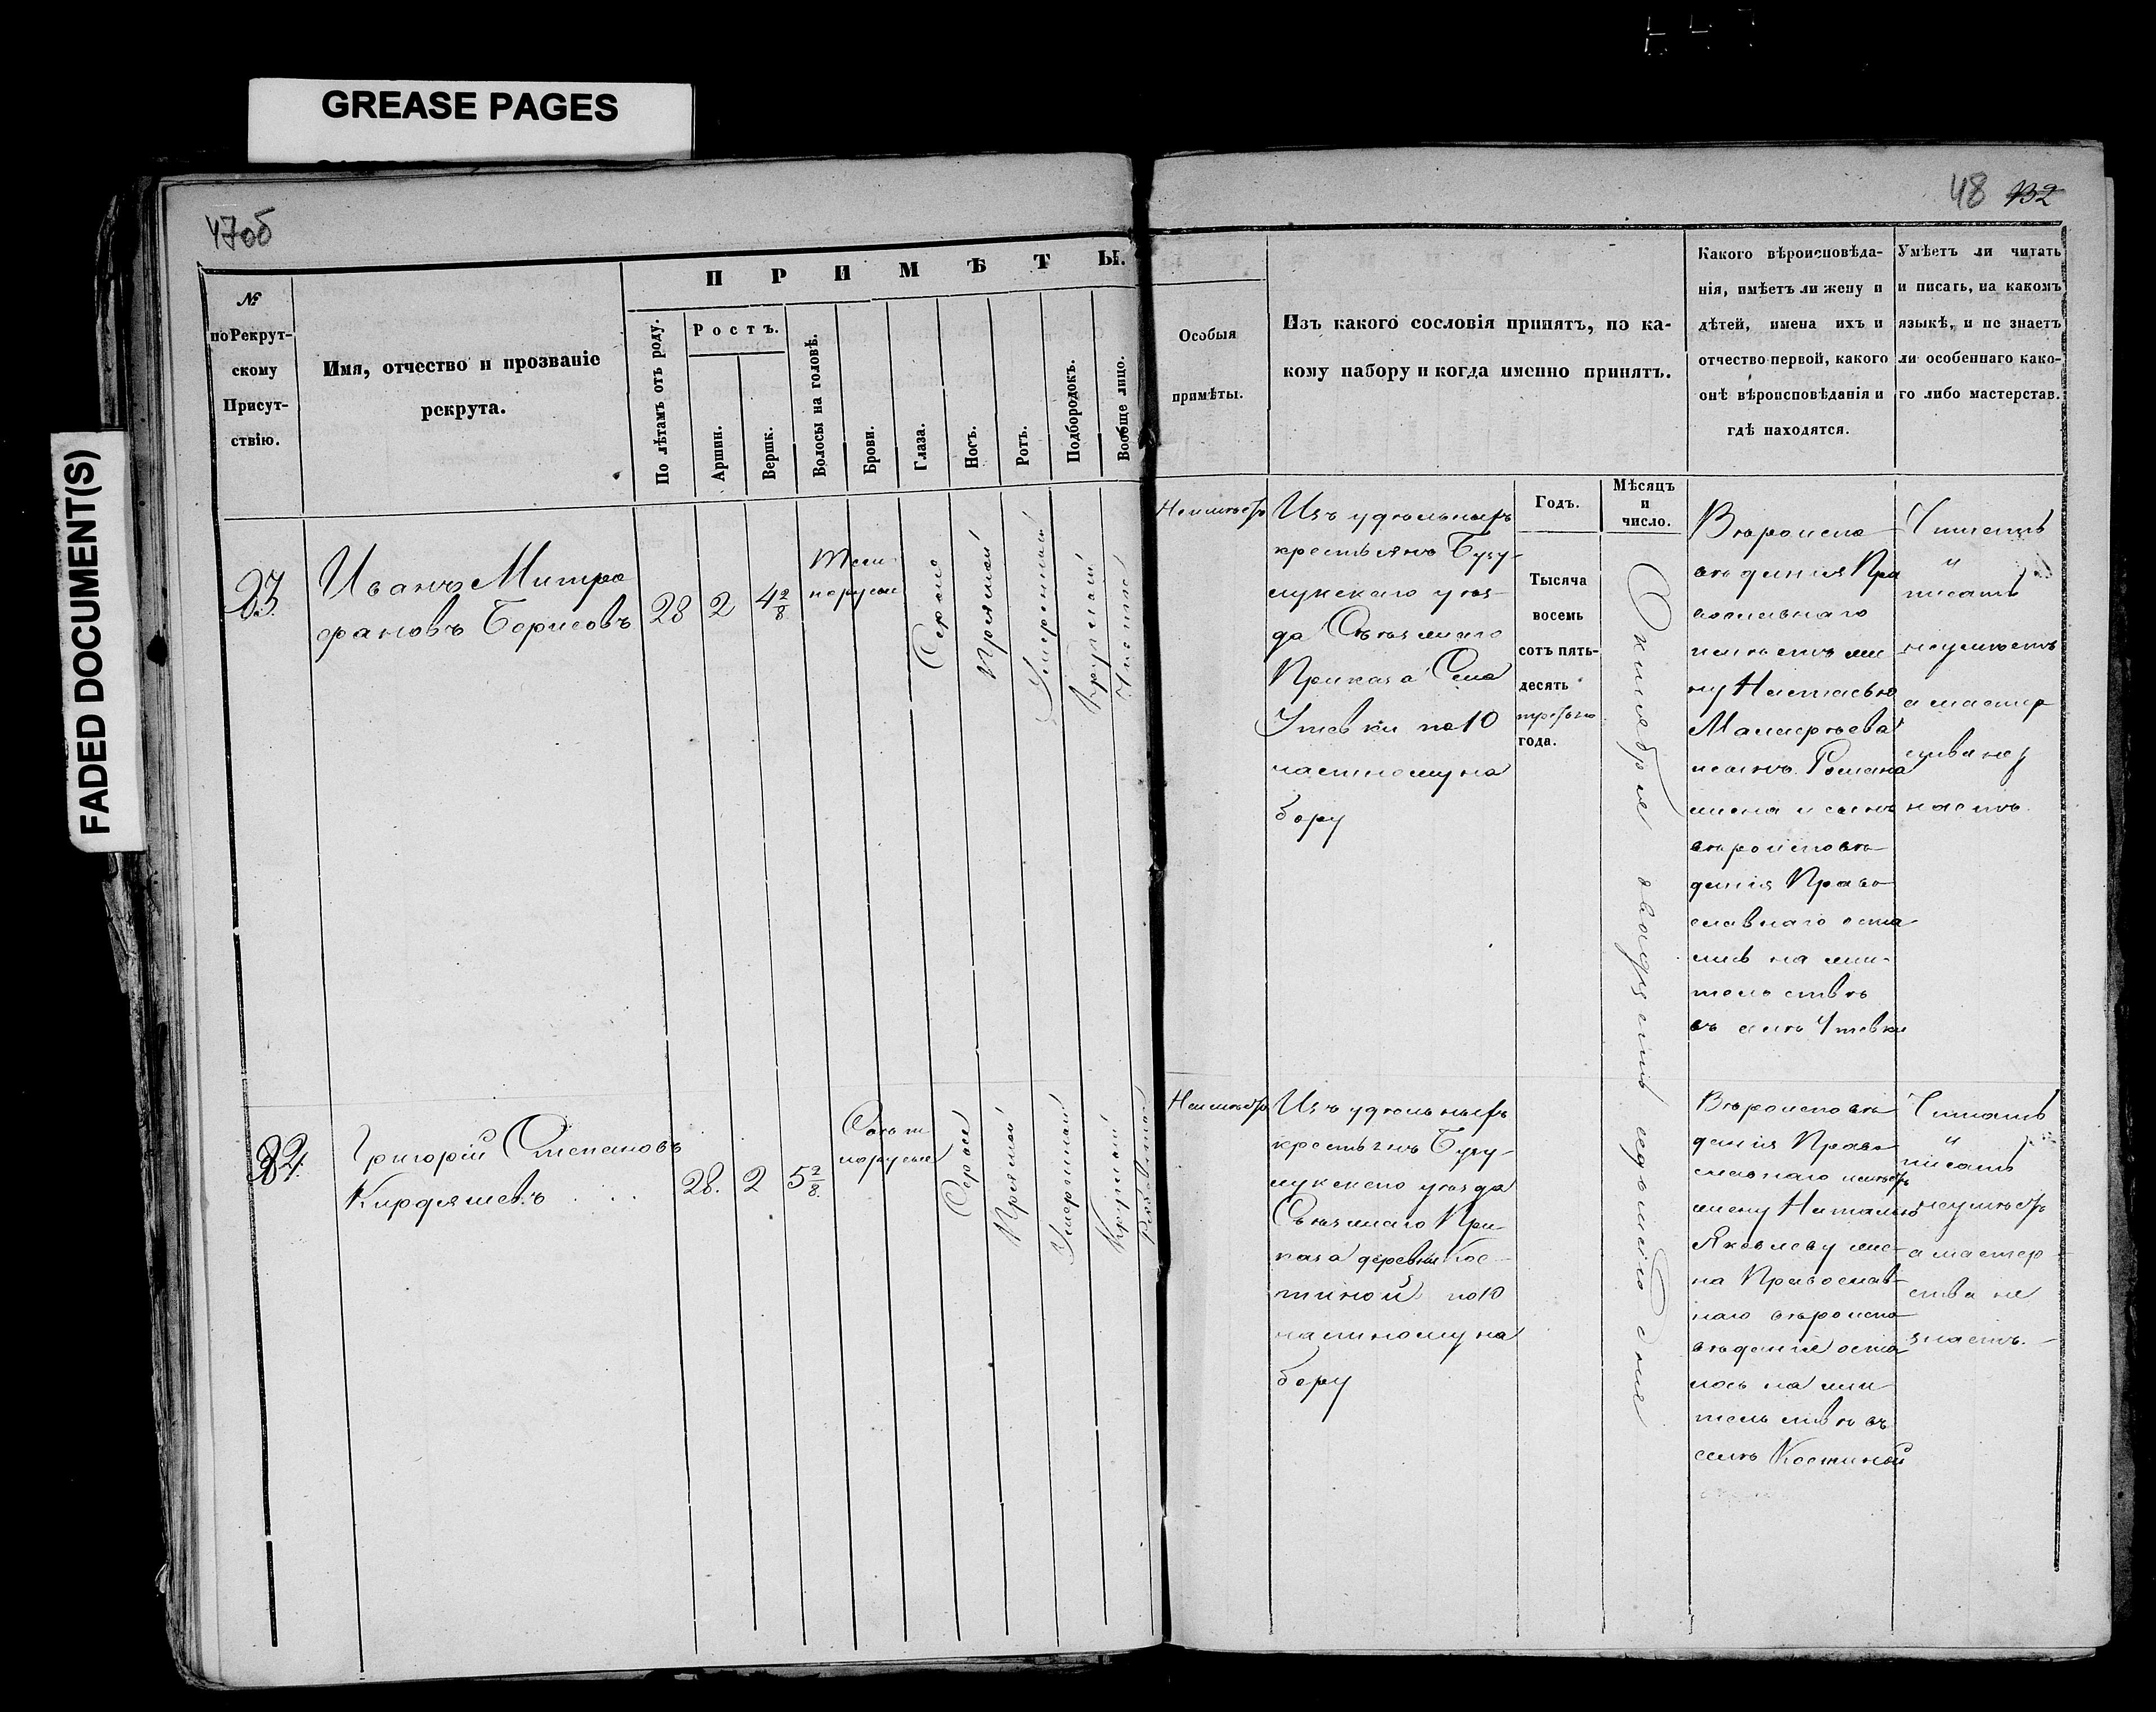 GREASE PAGES
FADED DOCUMENT(S)
47об
48 132
№
по Рекрут-
скому
Присут-
ствію.
Имя, отчество и прозваніе
рекрута.
П Р И М Ѣ Т Ы.
По лѣтамъ отъ роду.
Ростъ.
Аршин.
Вершк.
Волосы на головѣ.
Брови.
Глаза.
Носъ.
Ротъ.
Подбородокъ.
Вообще лицо.
Особыя
примѣты.
Изъ какого сословія принятъ, по ка-
кому набору и когда именно принятъ.
Какого вѣроисповѣда-
нія, имѣетъ ли жену и
дѣтей, имена ихъ и
отчество первой, какого
онѣ вѣроисповѣданія и
гдѣ находятся.
Умѣетъ ли читать
и писать, на какомъ
языкѣ, и не знаетъ
ли особеннаго како-
го либо мастерстав.
Годъ.
Мѣсяцъ
и
число.
Иванъ Митро
фановъ Борисовъ
28
2
4 2/8
Темно
русые
Серые
Прямой
Умеренный
Круглый
Чистое
Неимѣетъ
Изъ удѣльныхъ
крестьянъ Бузу-
лукскаго уѣз-
да Съѣзжаго
Приказа Села
Утевки по 10
частному на
бору
Тысяча
восемь
сотъ пять-
десять
третьяго
года.
Октября двадцать седьмого дня
Вѣроиспо
вѣданія Пра
вославнаго
имѣетъ же
ну Настасью
сына Романа
жена и сынъ
вѣроисповѣ
данія Право
славнаго оста
лись на жи-
тельствѣ
въ селѣ Утевки
Читать
и
писать
неумѣетъ
а мастер
ства не з
наетъ
Григорій Степановъ
Кирдяшевъ
28.
2
5 2/8.
Светло
русые
Серые
Прямой
Умеренный
Круглый
Неимѣетъ
Изъ удѣльныхъ
крестьянъ Бузу-
лукскаго уѣзда
Съѣзжаго При
каза деревни Кос-
тиной по 10
частному на
бору
Вѣроисповѣ
данія Право
славнаго имѣетъ
жену Наталью
Яковлеву же-
на Православ-
наго вѣроиспо
вѣданія оста
лось на жи
тельствѣ въ
селѣ Костиной
Читать
и
писать
неумѣетъ
а мастер
ства не
знаетъ.